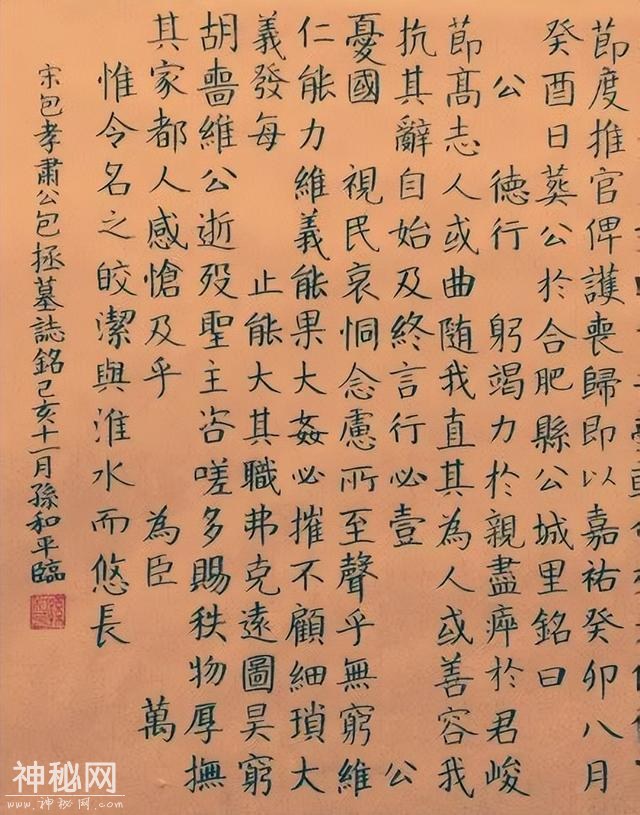 節度推官俾護喪歸即以嘉祐癸卯八月
癸酉日葬公於合肥縣公城里銘曰
公 德行 躬竭力於親盡瘁於君峻
節髙志人或曲随我直其為人或善容我
抗其辭自始及終言行必壹 公
憂國 視民哀恫念慮所至聲乎無窮維
仁能力維義能果大姦必摧不顧細瑣大
義發每 止能大其職弗克遠圖昊窮
胡嗇維公逝歿聖主咨嗟多賜秩物厚撫
其家都人感愴及乎 為臣 萬
惟令名之皎潔與淮水而悠長
宋包孝肅公包拯墓誌銘己亥十一月孫和平臨
神秘网
www.神秘网.com